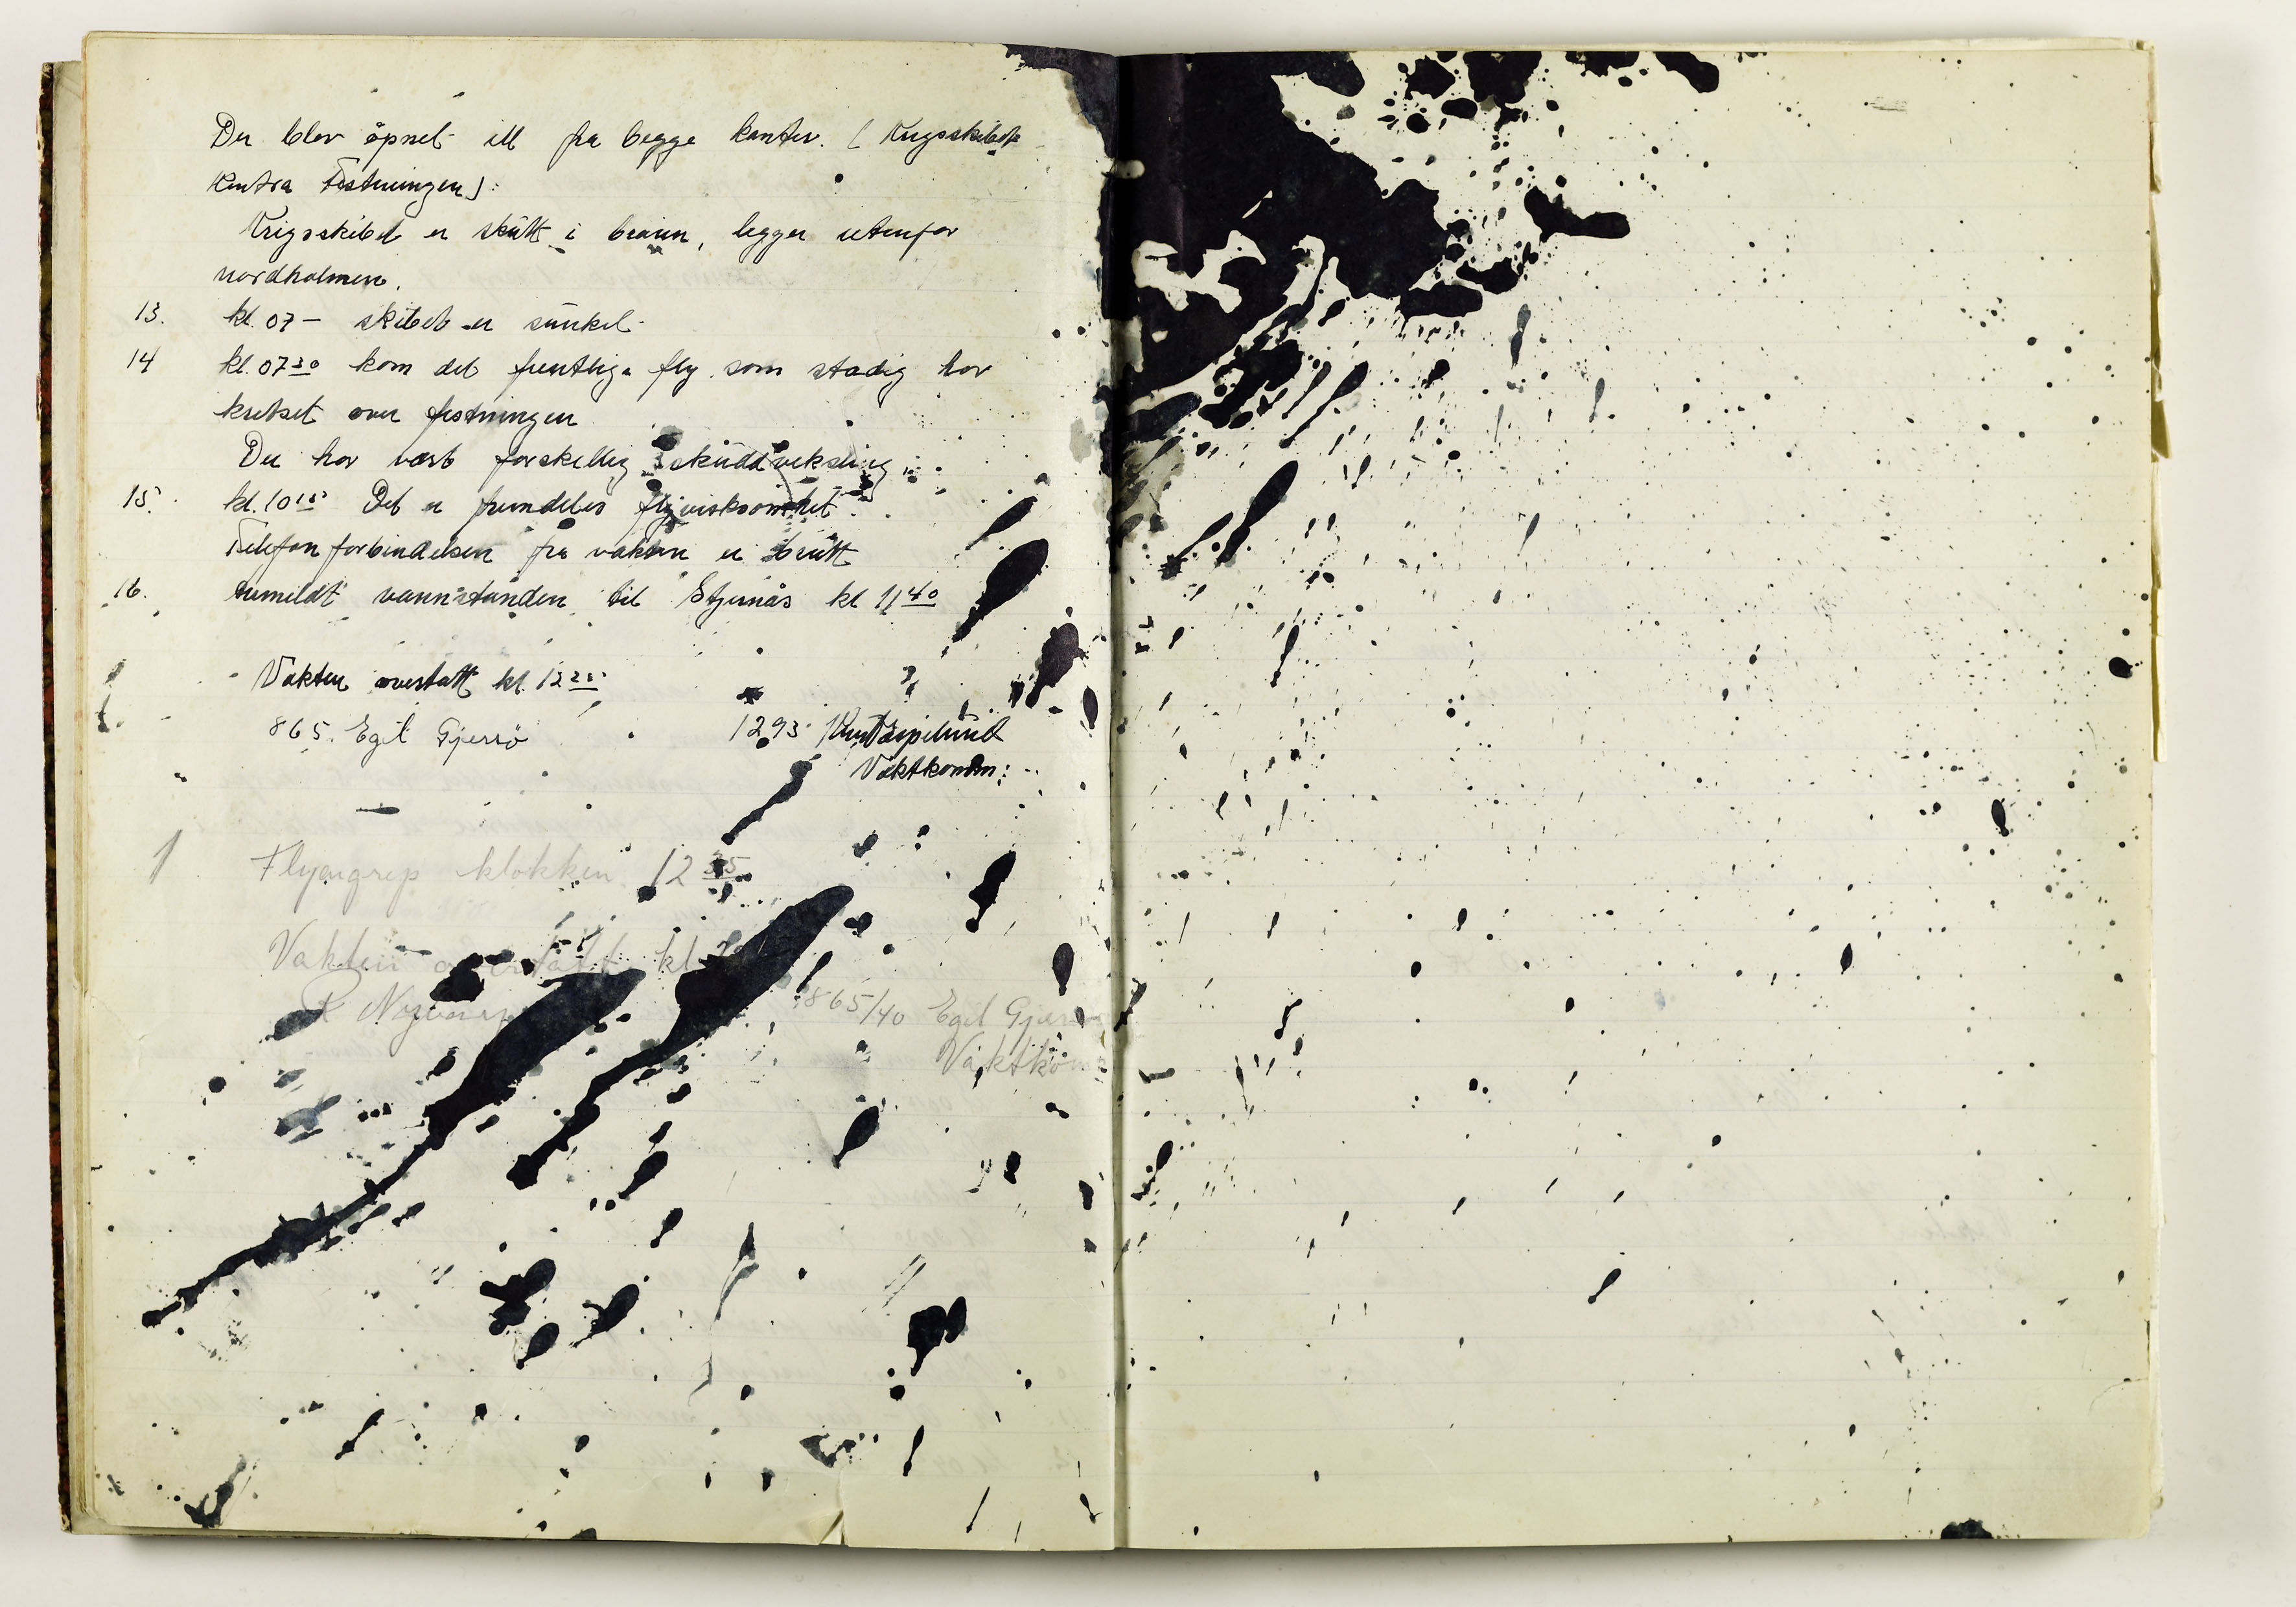 Der blev åpnet ill fra begge kanter. ( Krigsskibet
kontra Festningen):
Krigsskibet er skutt i brann, legger utenfor
nordholmen.
13. kl. 07 — skibet er sunket.
14 kl. 07 30 kom det fientlige fly som stadig har
kretset over festningen
Der har vært forskellig skuddveksling
15. kl. 10 15 Det er fremdeles flyvirksomhet.
Telefonforbindelsen fra vakten er brutt
16. inmeldt vannstanden til Stjernås kl 11 40
Vakten overtatt kl. 12 25
865. Egil Gjersö 1293
Vaktkomm:
1 Flyangrep klokken 12 35
Vakten overtatt kl
865/40 Egil